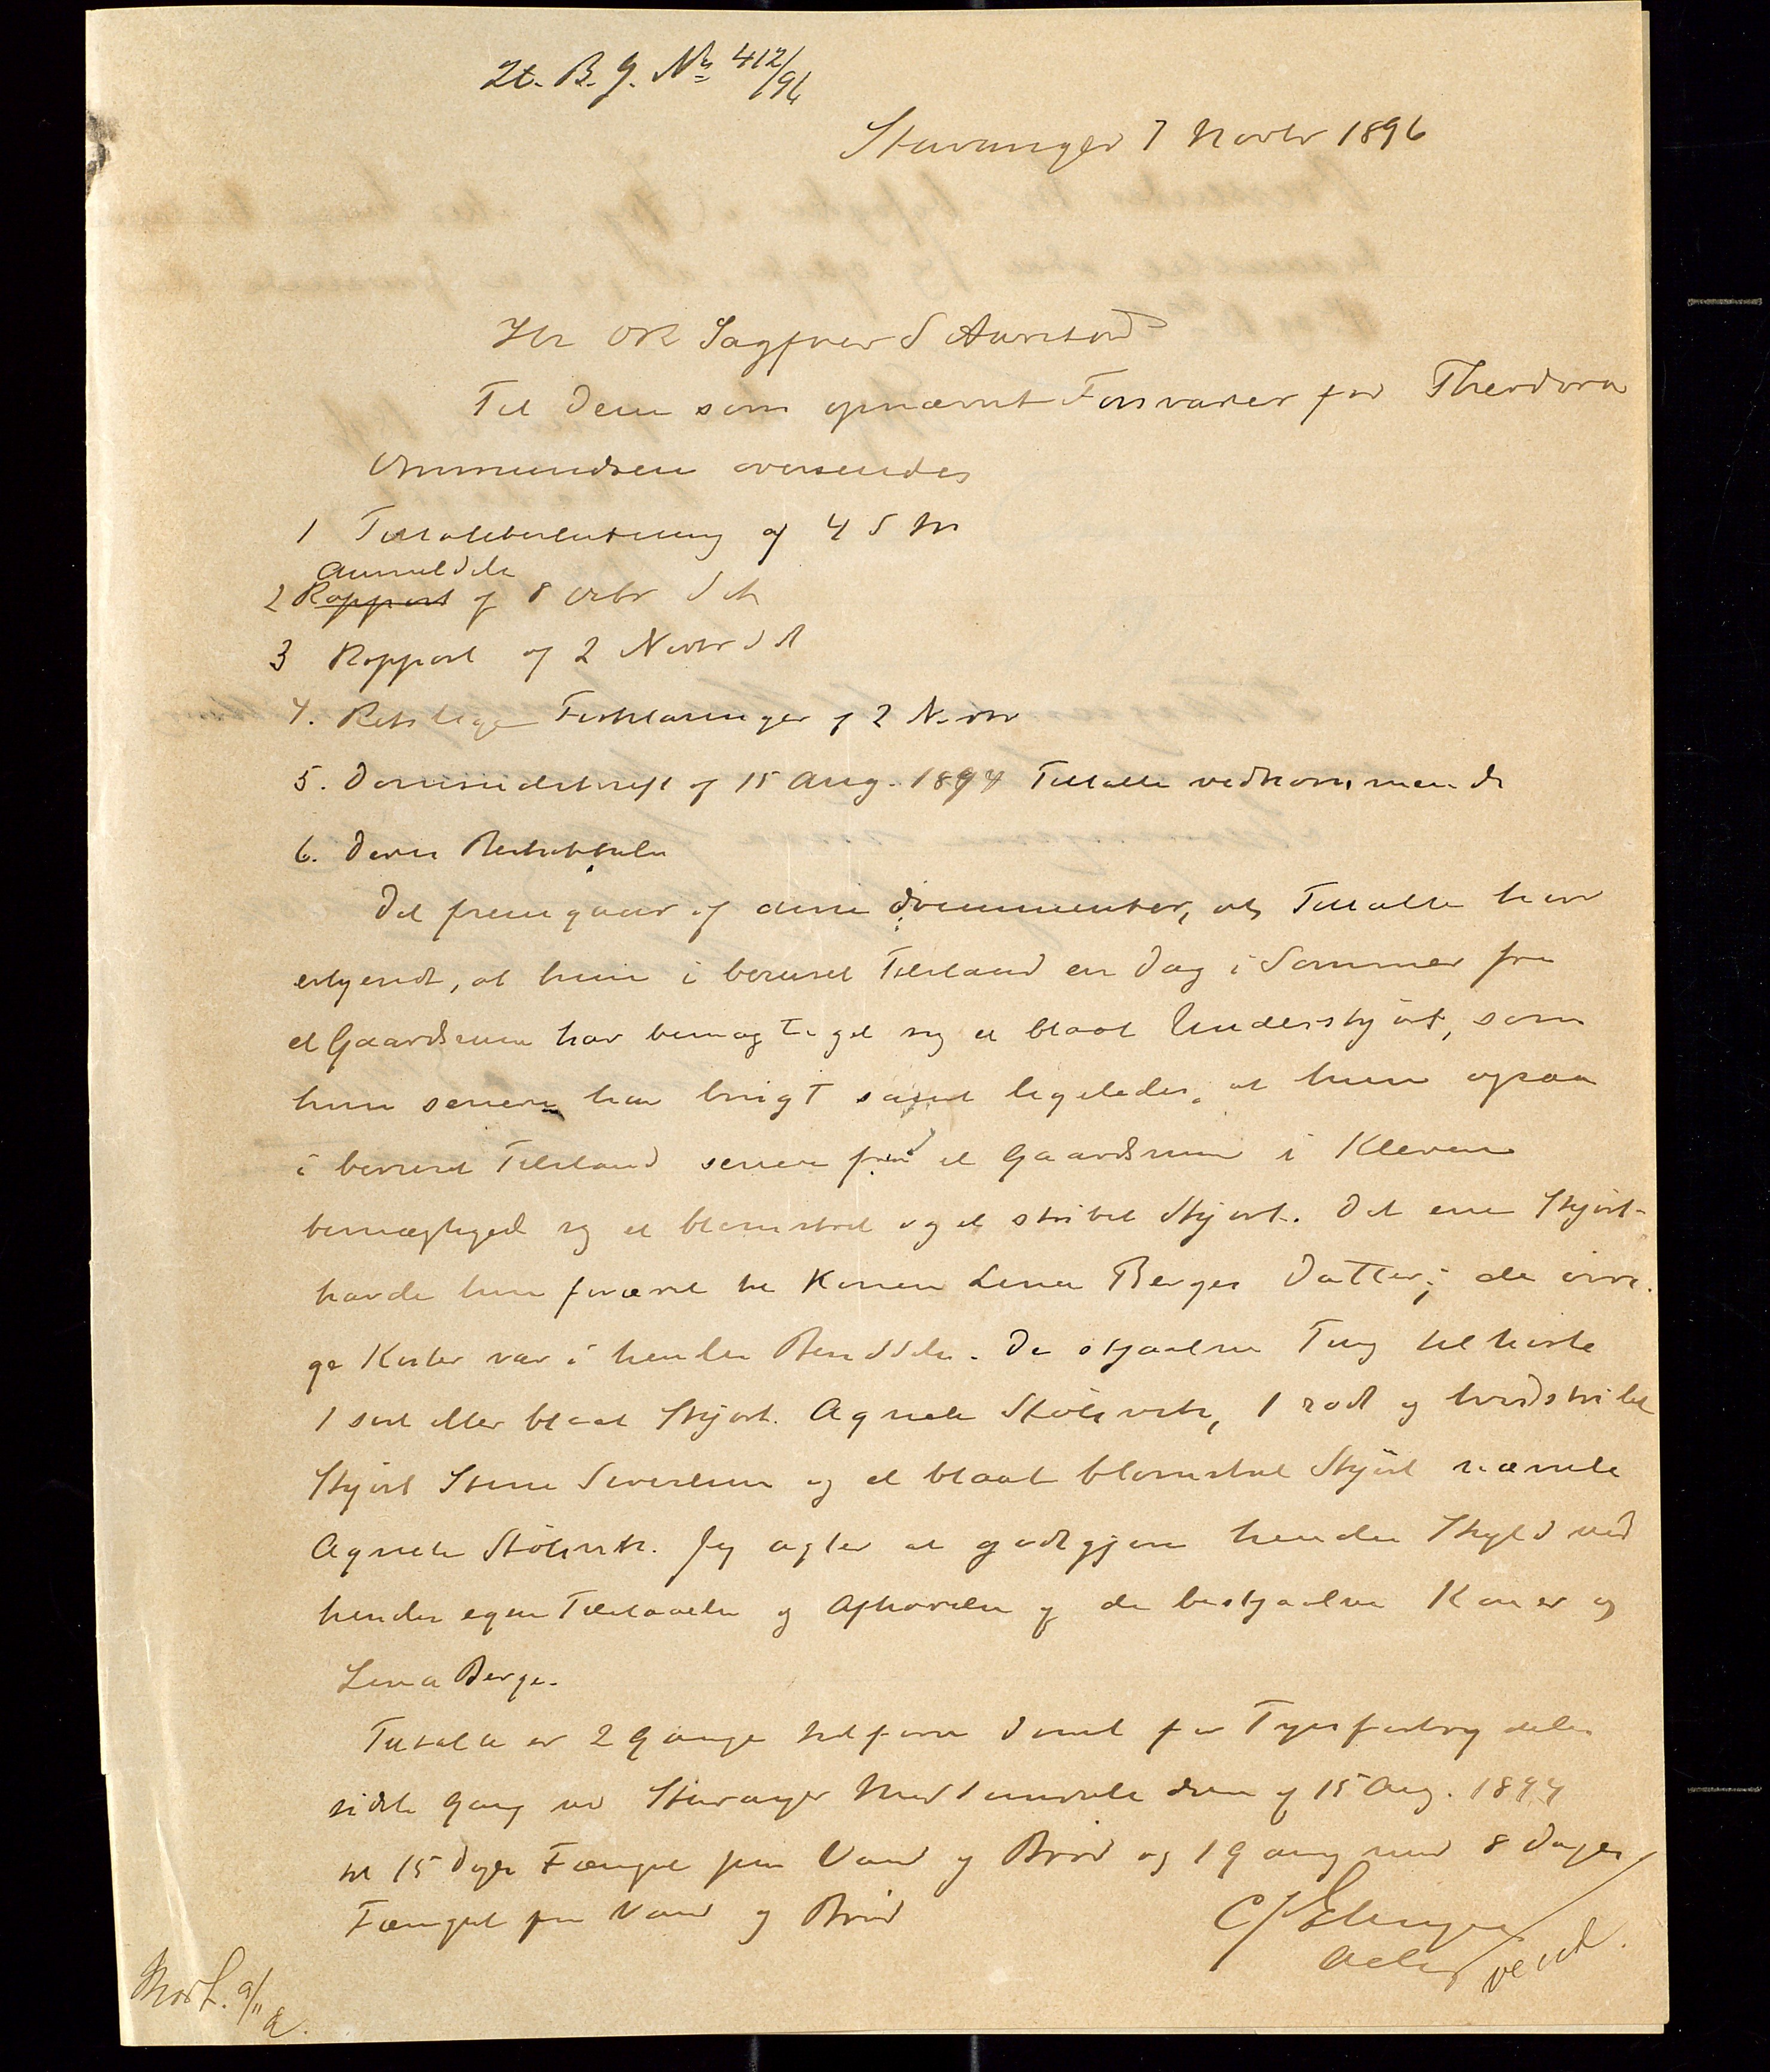 St. B. J. No 412/96
Stavanger 7 Novbr 1896
Hr OR Sagfører S Aarstad
Til Dem som opnævnt Forsvarer for Theodora
Ommundsen oversendes
1 Tiltalebeslutning af 4 d M
Anmeldelse
2 Rapport af 8 Octbr d A
3 Rapport af 2 Novbr d A
4. Retslige Forklaringer af 2 Novbr
5. Domsudskrift af 15 Aug. 1894 Tiltalte vedkommende
6. Deres Beskikkelse
Det fremgaar af disse Documenter, at Tiltalte har
erkjendt, at hun i beruset Tilstand en Dag i Sommer fra
et Gaardsrum har bemægtiget sig et blaat Underskjört, som
hun senere har brugt samt ligeledes, at hun ogsaa
i beruset Tilstand senere fra et Gaardsrum i Kleven
bemægtiged sig et blomstret og et stribet Skjört. Det ene Skjört
havde hun foræret til Konen Lena Berges Datter; de övri-
ge Koster var i hendes Besiddelse. De stjaalne Ting tilhørte
1 sort eller blaat Skjört Agnete Stölsvik, 1 rödt og hvidstribet
Skjört Stine Severinsen og et blaat blomstret Skjört nævnte
Agnete Stölsvik. Jeg agter at godtgjøre hendes Skyld ved
hendes egen Tilstaaelse og Afhørelse af de bestjaalne Koner og
Lena Berge.
Tiltalte er 2 Gange tidligere dømt for Tyvsforbrydelse
sidste Gang ved Stavanger Meddomsrets Dom af 15 Aug. 1894
til 15 Dages Fængsel paa Vand og Bröd og 1 Gang med 8 Dages
Fængsel paa Vand og Bröd
C J
vend.
Modt. 9/11